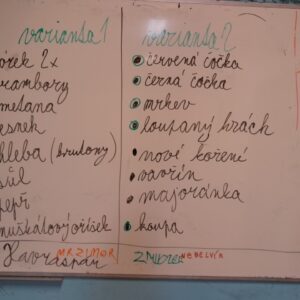 varianta 1
órek 2x
rambory
metana
esnek
hleba (krutony)
sůl
epř
muškátový oříšek
Havraspár
MRZIMOR
varianta 2
červená čočka
černá čočka
mrkev
loupaný hrách
nové koření
vavřín
majoránka
houpa
NEBELVÍR